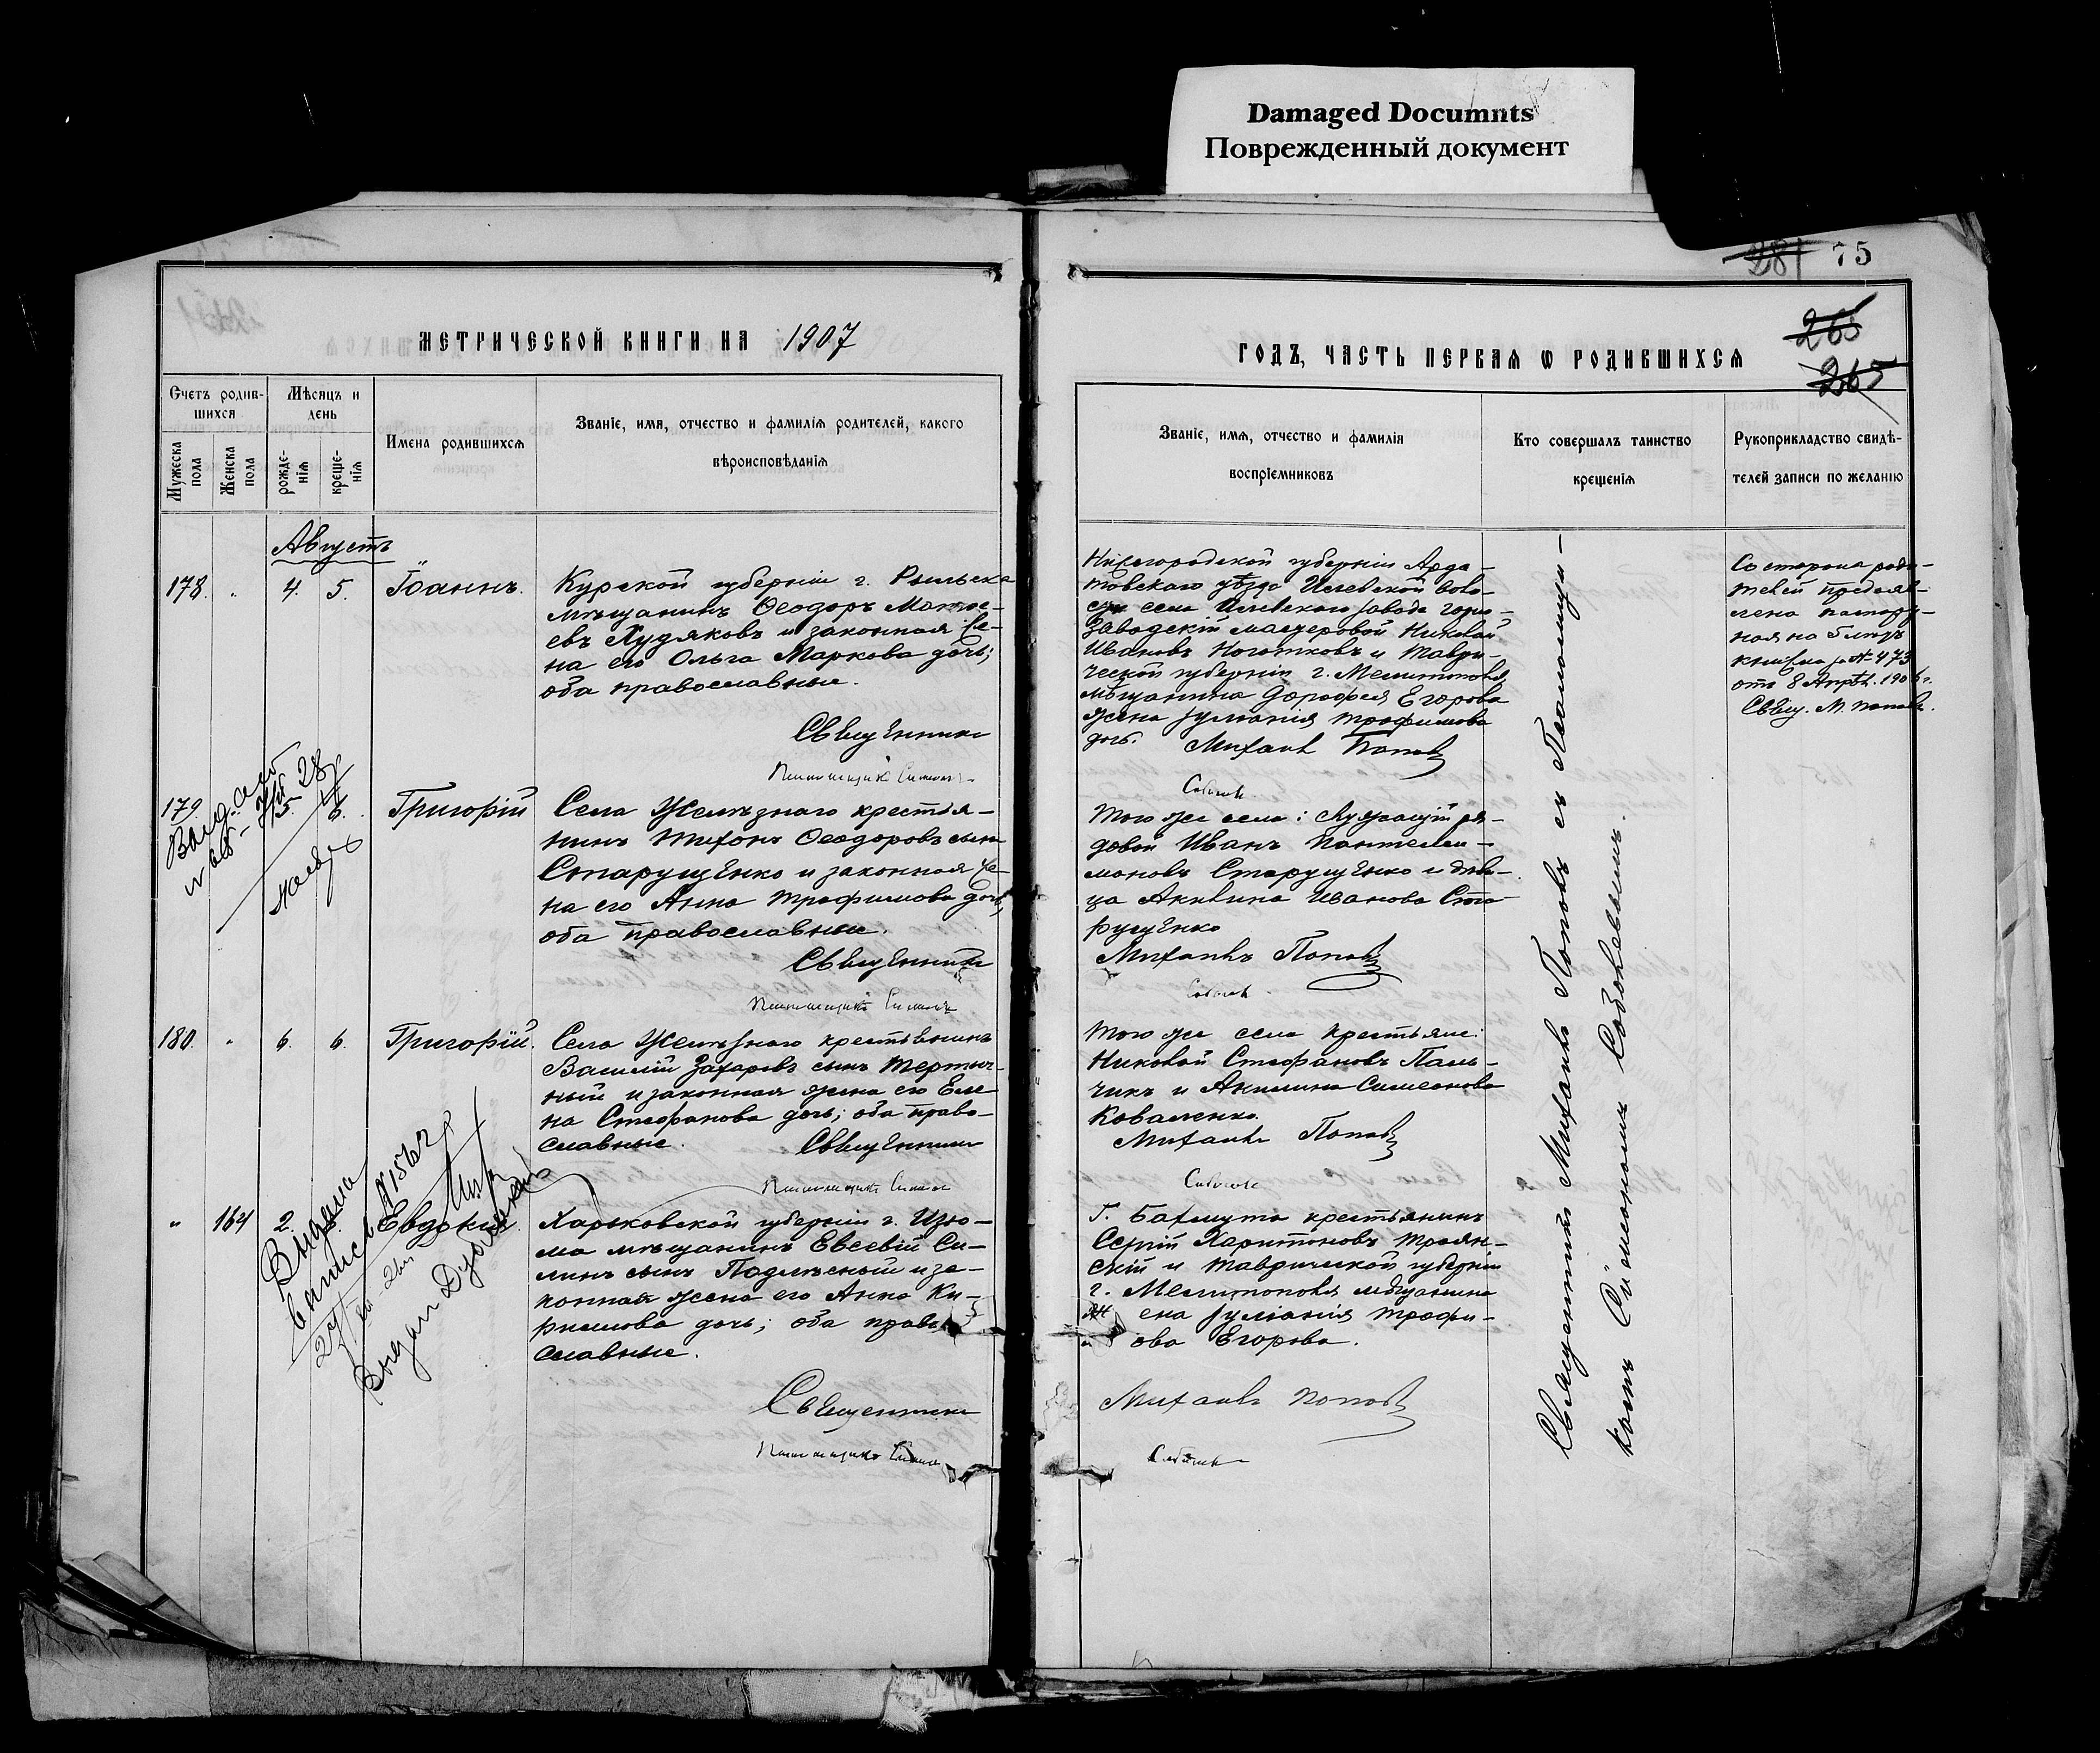 Damaged Documnts
Поврежденный документ
281 75
265
265
МЕТРИЧЕСКОЙ КНИГИ НА 1907
ГОДЪ, ЧАСТЬ ПЕРВАЯ Ѡ РОДИВШИХСЯ
Счетъ родив-
шихся
Мѣсяцъ и
день
Мужеска
пола
Женска
пола
рожде-
нія
креще-
нія
Имена родившихся
Званіе, имя, отчество и фамилія родителей, какого
вѣроисповѣданія
Званіе, имя, отчество и фамилія
воспріемниковъ
Кто совершалъ таинство
крещенія
Рукоприкладство свидѣ-
телей записи по желанію
Августъ
178. " 4. 5. Іоаннъ.
Курской губерніи г. Рыльска
мѣщанинъ Ѳеодоръ Матѳе-
евъ Худяковъ и законная же-
на его Ольга Маркова дочь;
оба православные.
Священникъ
Нижегородской губерніи Арда-
товскаго уѣзда Илевской воло-
сти села Илевскаго завода горно-
заводскій мастеровой Николай
Ивановъ Ноготковъ и Таври-
ческой губерніи г. Мелитополя
мѣщанина Дорофея Егорова
жена Іуліанія Трофимова
дочь. Михаилъ Поповъ
Со стороны роди-
телей предъяв-
лена паспорт-
ная на 5 лѣтъ
книжка за № 473
отъ 8 Апрѣл. 190
Свящ. М. Поповъ.
Псаломщикъ Симеонъ
Соболевъ
179. 5. 6. Григорій
Села Желѣзнаго крестья-
нинъ Тихонъ Ѳеодоровъ сынъ
Старущенко и законная же-
на его Анна Трофимова дочь,
оба православные.
Священникъ
Того же села: служащій ря-
довой Иванъ Пантелеи-
моновъ Старущенко и дѣви-
ца Акилина Иванова Ста-
рущенко
Михаилъ Поповъ
Псаломщикъ Симеонъ
Соболевъ
180. " 6. 6. Григорій.
Села Желѣзнаго крестьянинъ
Василій Захаровъ сынъ Тертыч-
ный и законная жена его Еле-
на Стефанова дочь; оба право-
славные. Священникъ
Того же села крестьяне:
Николай Стефановъ Паль-
чикъ и Акилина Симеонова
Коваленко.
Михаилъ Поповъ
Псаломщикъ Симеонъ
Соболевъ
" 164 2. Евдокія.
Харьковской губерніи г. Изю-
ма мѣщанинъ Евсевій Си-
линъ сынъ Подлѣсный и за-
конная жена его Анна Ки-
риллова дочь; оба право-
славные.
Священникъ
Г. Бахмута крестьянинъ
Сергій Харитоновъ Троян-
скій и Таврической губерніи
г. Мелитополя мѣщанина
жена Іуліанія Трофи-
ова Егорова.
Михаилъ Поповъ
Псаломщикъ Симеонъ
Соболевъ
Выдана
выпись
Священникъ Михаилъ Поповъ съ Псаломщи-
комъ Симеономъ Соболевымъ.